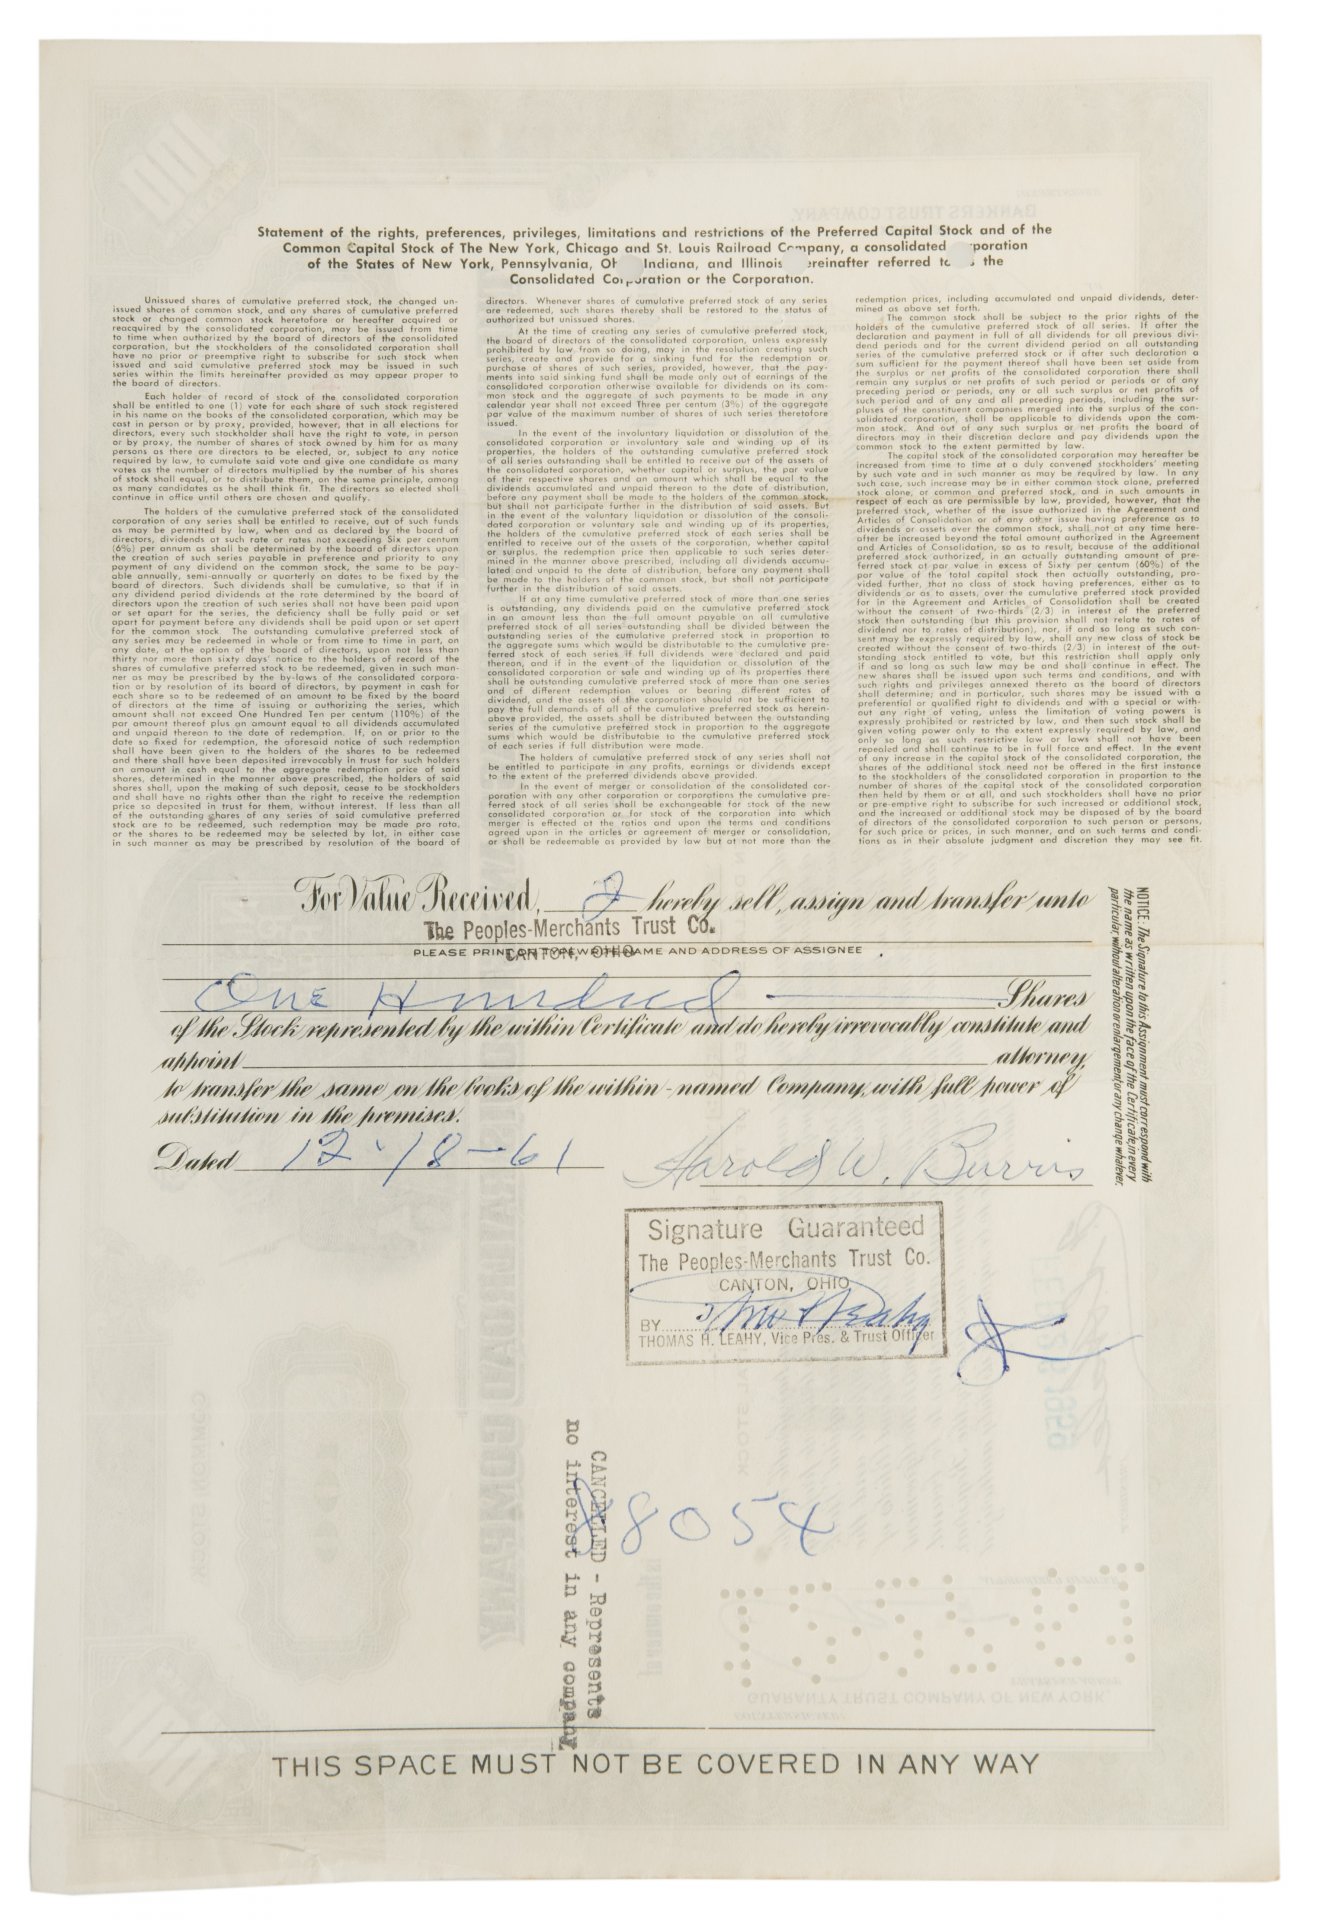 Statement of the rights, preferences, privileges, limitations and restrictions of the Preferred Capital Stock and of the
Common Capital Stock of The New York, Chicago and St. Louis Railroad Company, a consolidated corporation
of the States of New York, Pennsylvania, Ohio, Indiana, and Illinois hereinafter referred to as the
Consolidated Corporation or the Corporation.
Unissued shares of cumulative preferred stock, the changed un-
issued shares of common stock, and any shares of cumulative preferred
stock or changed common stock heretofore or hereafter acquired or
reacquired by the consolidated corporation, may be issued from time
to time when authorized by the board of directors of the consolidated
corporation, but the stockholders of the consolidated corporation shall
have no prior or preemptive right to subscribe for such stock when
issued and said cumulative preferred stock may be issued in such
series within the limits hereinafter provided as may appear proper to
the board of directors.
Each holder of record of stock of the consolidated corporation
shall be entitled to one (1) vote for each share of such stock registered
in his name on the books of the consolidated corporation, which may be
cast in person or by proxy, provided, however, that in all elections for
directors, every such stockholder shall have the right to vote, in person
or by proxy, the number of shares of stock owned by him for as many
persons as there are directors to be elected, or, subject to any notice
required by law, to cumulate said vote and give one candidate as many
votes as the number of directors multiplied by the number of his shares
of stock shall equal, or to distribute them, on the same principle, among
as many candidates as he shall think fit. The directors so elected shall
continue in office until others are chosen and qualify.
The holders of the cumulative preferred stock of the consolidated
corporation of any series shall be entitled to receive, out of such funds
as may be permitted by law, when and as declared by the board of
directors, dividends at such rate or rates not exceeding Six per centum
(6%) per annum as shall be determined by the board of directors upon
the creation of such series payable in preference and priority to any
payment of any dividend on the common stock, the same to be pay-
able annually, semi-annually or quarterly on dates to be fixed by the
board of directors. Such dividends shall be cumulative, so that if in
any dividend period dividends at the rate determined by the board of
directors upon the creation of such series shall not have been paid upon
or set apart for the series, the deficiency shall be fully paid or set
apart for payment before any dividends shall be paid upon or set apart
for the common stock. The outstanding cumulative preferred stock of
any series may be redeemed in whole or from time to time in part, on
any date, at the option of the board of directors, upon not less than
thirty nor more than sixty days' notice to the holders of record of the
shares of cumulative preferred stock to be redeemed, given in such man-
ner as may be prescribed by the by-laws of the consolidated corpora-
tion or by resolution of its board of directors, by payment in cash for
each share so to be redeemed of an amount to be fixed by the board
of directors at the time of issuing or authorizing the series, which
amount shall not exceed One Hundred Ten per centum (110%) of the
par amount thereof, plus an amount equal to all dividends accumulated
and unpaid thereon to the date of redemption. If, on or prior to the
date so fixed for redemption, the aforesaid notice of such redemption
shall have been given to the holders of the shares to be redeemed
and there shall have been deposited irrevocably in trust for such holders
an amount in cash equal to the aggregate redemption price of said
shares, determined in the manner above prescribed, the holders of said
shares shall, upon the making of such deposit, cease to be stockholders
and shall have no rights other than the right to receive the redemption
price so deposited in trust for them, without interest. If less than all
of the outstanding shares of any series of said cumulative preferred
stock are to be redeemed, such redemption may be made pro rata,
or the shares to be redeemed may be selected by lot, in either case
in such manner as may be prescribed by resolution of the board of
directors. Whenever shares of cumulative preferred stock of any series
are redeemed, such shares thereby shall be restored to the status of
authorized but unissued shares.
At the time of creating any series of cumulative preferred stock,
the board of directors of the consolidated corporation, unless expressly
prohibited by law from so doing, may in the resolution creating such
series, create and provide for a sinking fund for the redemption or
purchase of shares of such series, provided, however, that the pay-
ments into said sinking fund shall be made only out of earnings of the
consolidated corporation otherwise available for dividends on its com-
mon stock and the aggregate of such payments to be made in any
calendar year shall not exceed Three per centum (3%) of the aggregate
par value of the maximum number of shares of such series theretofore
issued.
In the event of the involuntary liquidation or dissolution of the
consolidated corporation or involuntary sale and winding up of its
properties, the holders of the outstanding cumulative preferred stock
of all series outstanding shall be entitled to receive out of the assets of
the consolidated corporation, whether capital or surplus, the par value
of their respective shares and an amount which shall be equal to the
dividends accumulated and unpaid thereon to the date of distribution,
before any payment shall be made to the holders of the common stock,
but shall not participate further in the distribution of said assets. But
in the event of the voluntary liquidation or dissolution of the consoli-
dated corporation or voluntary sale and winding up of its properties,
the holders of the cumulative preferred stock of each series shall be
entitled to receive out of the assets of the corporation, whether capital
or surplus, the redemption price then applicable to such series deter-
mined in the manner above prescribed, including all dividends accumu-
lated and unpaid to the date of distribution, before any payment shall
be made to the holders of the common stock, but shall not participate
further in the distribution of said assets.
If at any time cumulative preferred stock of more than one series
is outstanding, any dividends paid on the cumulative preferred stock
in an amount less than the full amount payable on all cumulative
preferred stock of all series outstanding shall be divided between the
outstanding series of the cumulative preferred stock in proportion to
the aggregate sums which would be distributable to the cumulative pre-
ferred stock of each series if full dividends were declared and paid
thereon, and if in the event of the liquidation or dissolution of the
consolidated corporation or sale and winding up of its properties there
shall be outstanding cumulative preferred stock of more than one series
and of different redemption values or bearing different rates of
dividend, and the assets of the corporation should not be sufficient to
pay the full demands of all of the cumulative preferred stock as herein-
above provided, the assets shall be distributed between the outstanding
series of the cumulative preferred stock in proportion to the aggregate
sums which would be distributable to the cumulative preferred stock
of each series if full distribution were made.
The holders of cumulative preferred stock of any series shall not
be entitled to participate in any profits, earnings or dividends except
to the extent of the preferred dividends above provided.
In the event of merger or consolidation of the consolidated cor-
poration with any other corporation or corporations the cumulative pre-
ferred stock of all series shall be exchangeable for stock of the new
consolidated corporation or for stock of the corporation into which
merger is effected at the ratios and upon the terms and conditions
agreed upon in the articles or agreement of merger or consolidation,
or shall be redeemable as provided by law but at not more than the
redemption prices, including accumulated and unpaid dividends, deter-
mined as above set forth.
The common stock shall be subject to the prior rights of the
holders of the cumulative preferred stock of all series. If after the
declaration and payment in full of all dividends for all previous divi-
dend periods and for the current dividend period on all outstanding
series of the cumulative preferred stock or if after such declaration a
sum sufficient for the payment thereof shall have been set aside from
the surplus or net profits of the consolidated corporation there shall
remain any surplus or net profits of such period or periods or of any
preceding period or periods, any or all such surplus or net profits of
such period and of any and all preceding periods, including the sur-
pluses of the constituent companies merged into the surplus of the con-
solidated corporation, shall be applicable to dividends upon the com-
mon stock. And out of any such surplus or net profits the board of
directors may in their discretion declare and pay dividends upon the
common stock to the extent permitted by law.
The capital stock of the consolidated corporation may hereafter be
increased from time to time at a duly convened stockholders' meeting
by such vote and in such manner as may be required by law. In any
such case, such increase may be in either common stock alone, preferred
stock alone, or common and preferred stock, and in such amounts in
respect of each as are permissible by law, provided, however, that the
preferred stock, whether of the issue authorized in the Agreement and
Articles of Consolidation or of any other issue having preference as to
dividends or assets over the common stock, shall not at any time here-
after be increased beyond the total amount authorized in the Agreement
and Articles of Consolidation, so as to result, because of the additional
preferred stock authorized, in an actually outstanding amount of pre-
ferred stock at par value in excess of Sixty per centum (60%) of the
par value of the total capital stock then actually outstanding, pro-
vided further, that no class of stock having preferences, either as to
dividends or as to assets, over the cumulative preferred stock provided
for in the Agreement and Articles of Consolidation shall be created
without the consent of two-thirds (2/3) in interest of the preferred
stock then outstanding (but this provision shall not relate to rates of
dividend nor to rates of distribution), nor, if and so long as such con-
sent may be expressly required by law, shall any new class of stock be
created without the consent of two-thirds (2/3) in interest of the out-
standing stock entitled to vote, but this restriction shall apply only
if and so long as such law may be and shall continue in effect. The
new shares shall be issued upon such terms and conditions, and with
such rights and privileges annexed thereto as the board of directors
shall determine; and in particular, such shares may be issued with a
preferential or qualified right to dividends and with a special or with-
out any right of voting, unless the limitation of voting powers is
expressly prohibited or restricted by law, and then such stock shall be
given voting power only to the extent expressly required by law, and
only so long as such restrictive law or laws shall not have been
repealed and shall continue to be in full force and effect. In the event
of any increase in the capital stock of the consolidated corporation, the
shares of the additional stock need not be offered in the first instance
to the stockholders of the consolidated corporation in proportion to the
number of shares of the capital stock of the consolidated corporation
then held by them or at all, and such stockholders shall have no prior
or pre-emptive right to subscribe for such increased or additional stock,
and the increased or additional stock may be disposed of by the board
of directors of the consolidated corporation to such person or persons,
for such price or prices, in such manner, and on such terms and condi-
tions as in their absolute judgment and discretion they may see fit.
For Value Received, I hereby sell, assign and transfer unto
The Peoples-Merchants Trust Co.
CANTON, OHIO
PLEASE PRINT OR TYPEWRITE NAME AND ADDRESS OF ASSIGNEE
One Hundred Shares
of the Stock represented by the within Certificate and do hereby irrevocably constitute and
appoint attorney,
to transfer the same on the books of the within-named Company, with full power of
substitution in the premises.
Dated 12-18-61 Harold W. Burris
NOTICE: The Signature to this Assignment must correspond with
the name as written upon the face of the Certificate, in every
particular, without alteration or enlargement or any change whatever.
Signature Guaranteed
The Peoples-Merchants Trust Co.
CANTON, OHIO
BY
THOMAS H. LEAHY, Vice Pres. & Trust Officer
CANCELLED - Represents
no interest in any company
88054
THIS SPACE MUST NOT BE COVERED IN ANY WAY